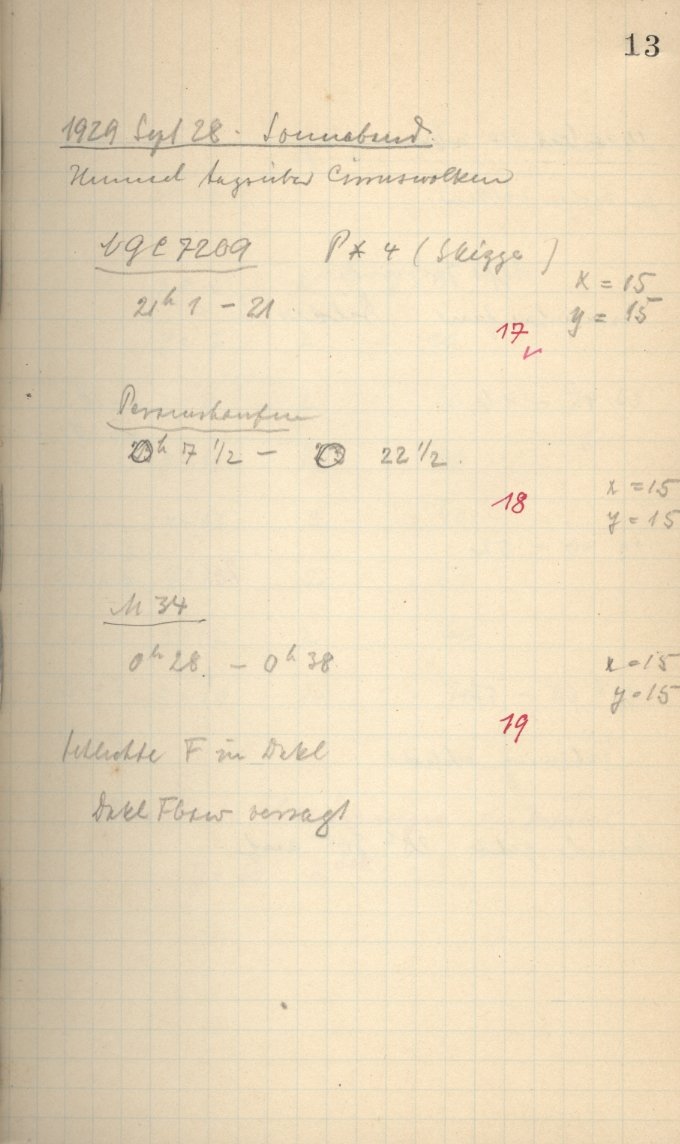 13
1929 Sept 28. Sonnabend.
Himmel tagsüber Cirruswolken
NGC 7209 P * 4 (Skizze)
x = 15
21h 1 - 21 y = 15
17
Perseushaufen
h 7 1/2 - 22 1/2.
x = 15
18
y = 15
M 34
0h 28 - 0h 38 x = 15
y = 15
19
schlechte F in Dekl
Dekl versagt